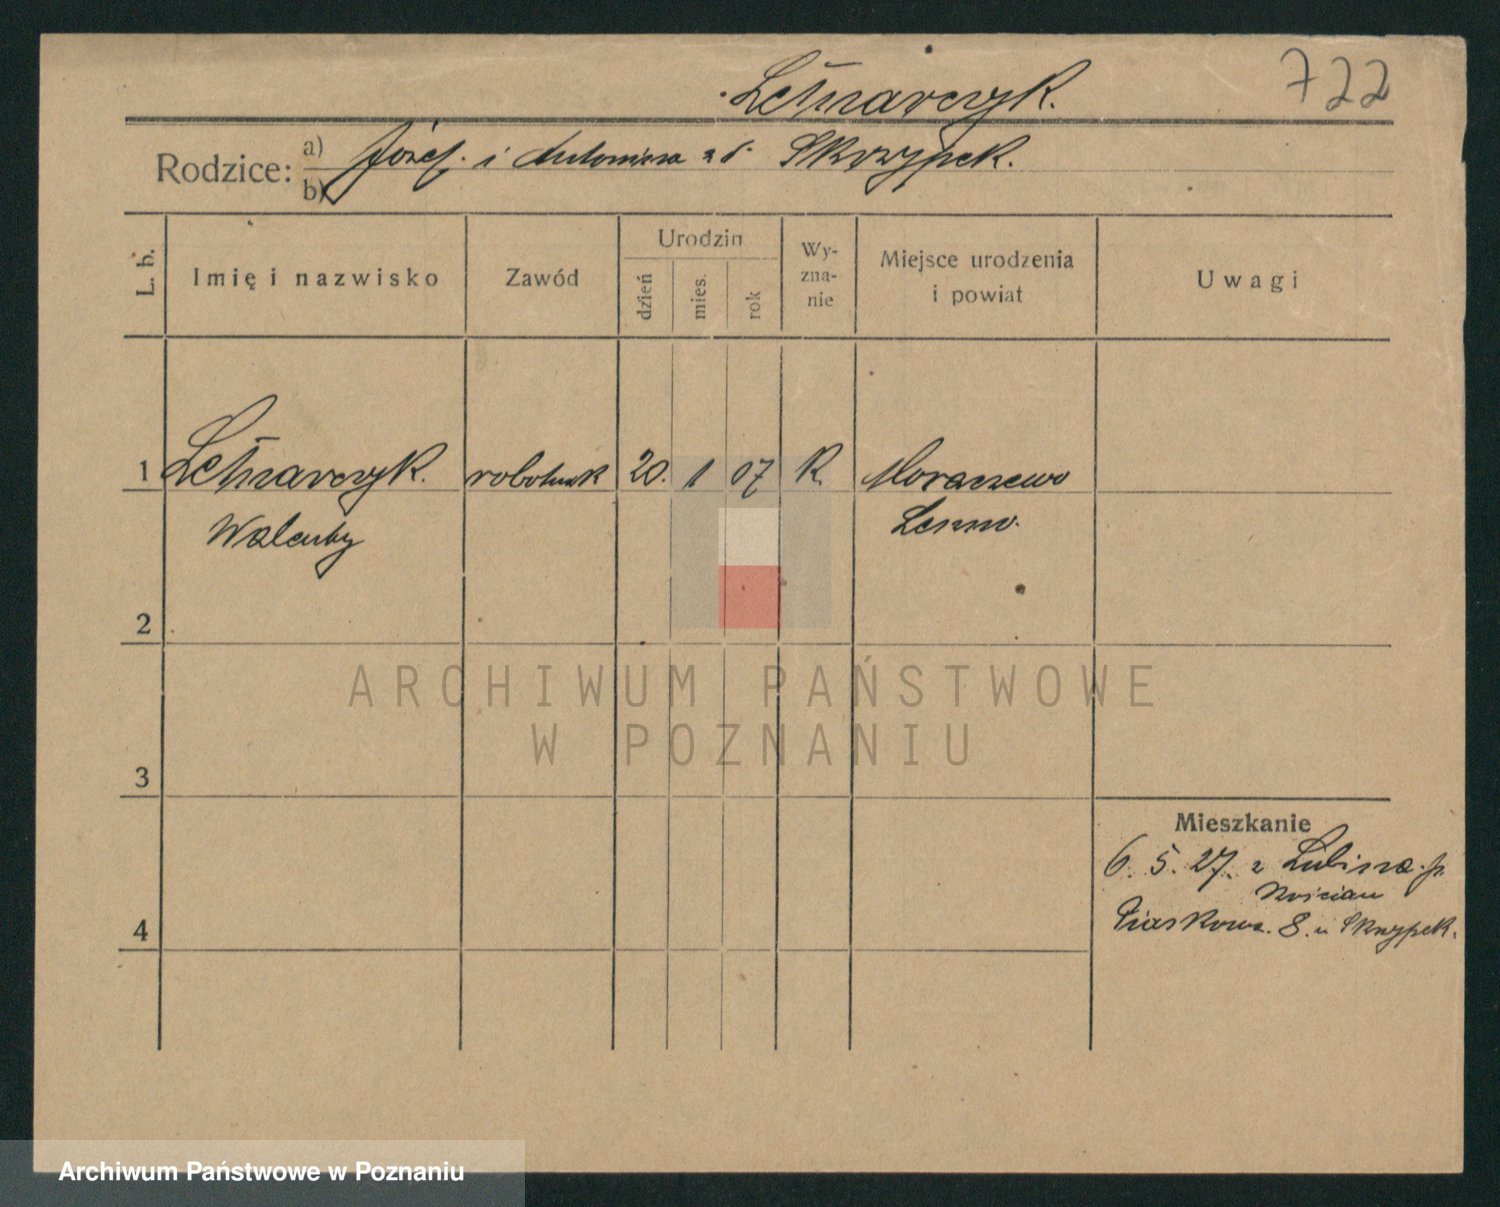 Letnarczyk.
722
Rodzice:
a) Józef i Antonina z d. Skrzypek.
b)
L. b.
Imię i nazwisko
Zawód
Urodzin
dzień
mies.
rok
Wy-
zna-
nie
Miejsce urodzenia
i powiat
Uwagi
1 Letnarczyk. robotnik 20. 1 07 K. Moraczewo
Walenty Leszno.
2
3
4
Mieszkanie
6. 5. 27. z Lubina. p.
Kościan
Piaskowa. 8. u Skrzypek.
ARCHIWUM PAŃSTWOWE
W POZNANIU
Archiwum Państwowe w Poznaniu